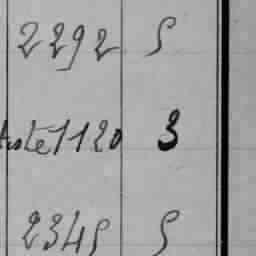 2292 5
1120 3
2345 5